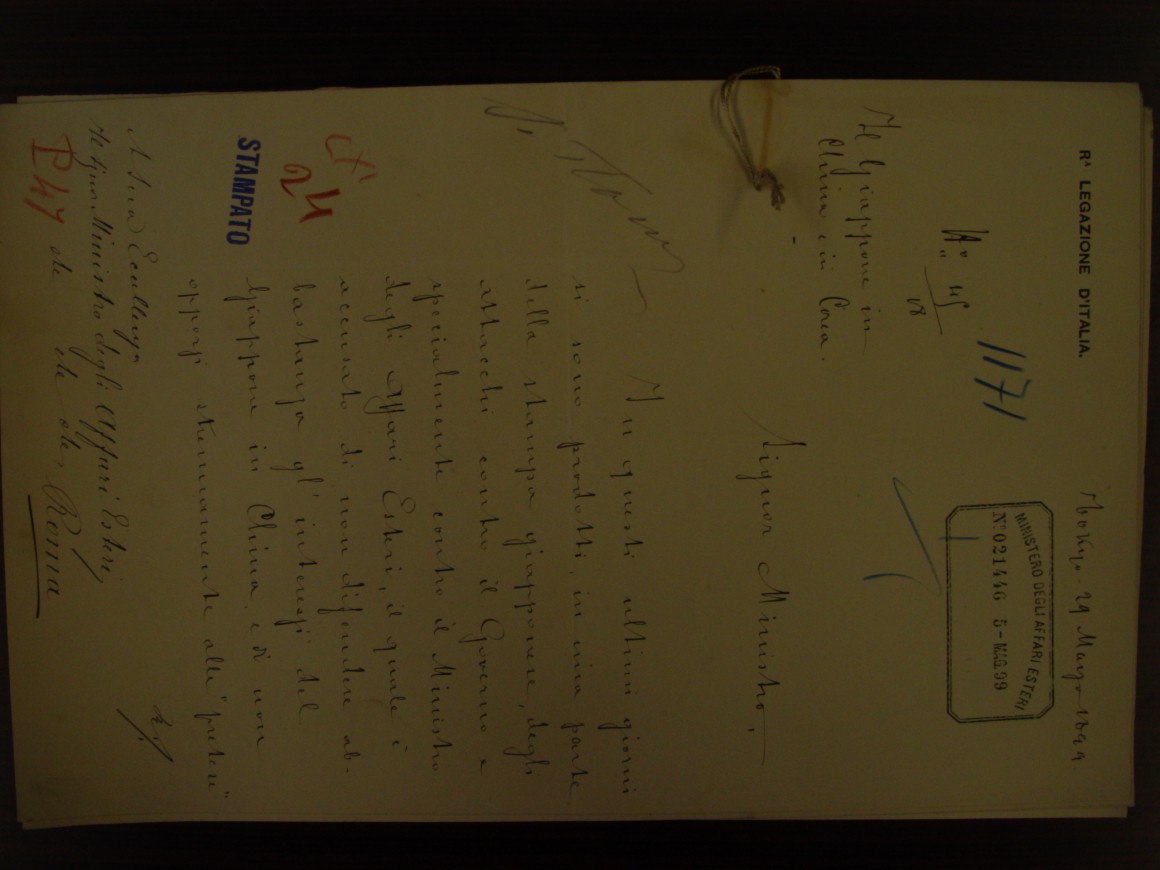 Rª LEGAZIONE D'ITALIA.
Tōkyō. 29 Marzo 1899.
1171
Nº 45
18
MINISTERO DEGLI AFFARI ESTERI
Nº 021446 5-MAG.99
Il Giappone in
China e in Corea.
Signor Ministro,
In questi ultimi giorni
si sono prodotti, in una parte
della stampa giapponese, degli
attacchi contro il Governo e
specialmente contro il Ministro
degli Affari Esteri, il quale è
accusato di non difendere ab-
bastanza gl'interessi del
Giappone in China, e di non
opporsi strenuamente alle "pretese"
24
STAMPATO
A Sua Eccellenza
Il Signor Ministro degli Affari Esteri,
etc etc etc, Roma
P 47